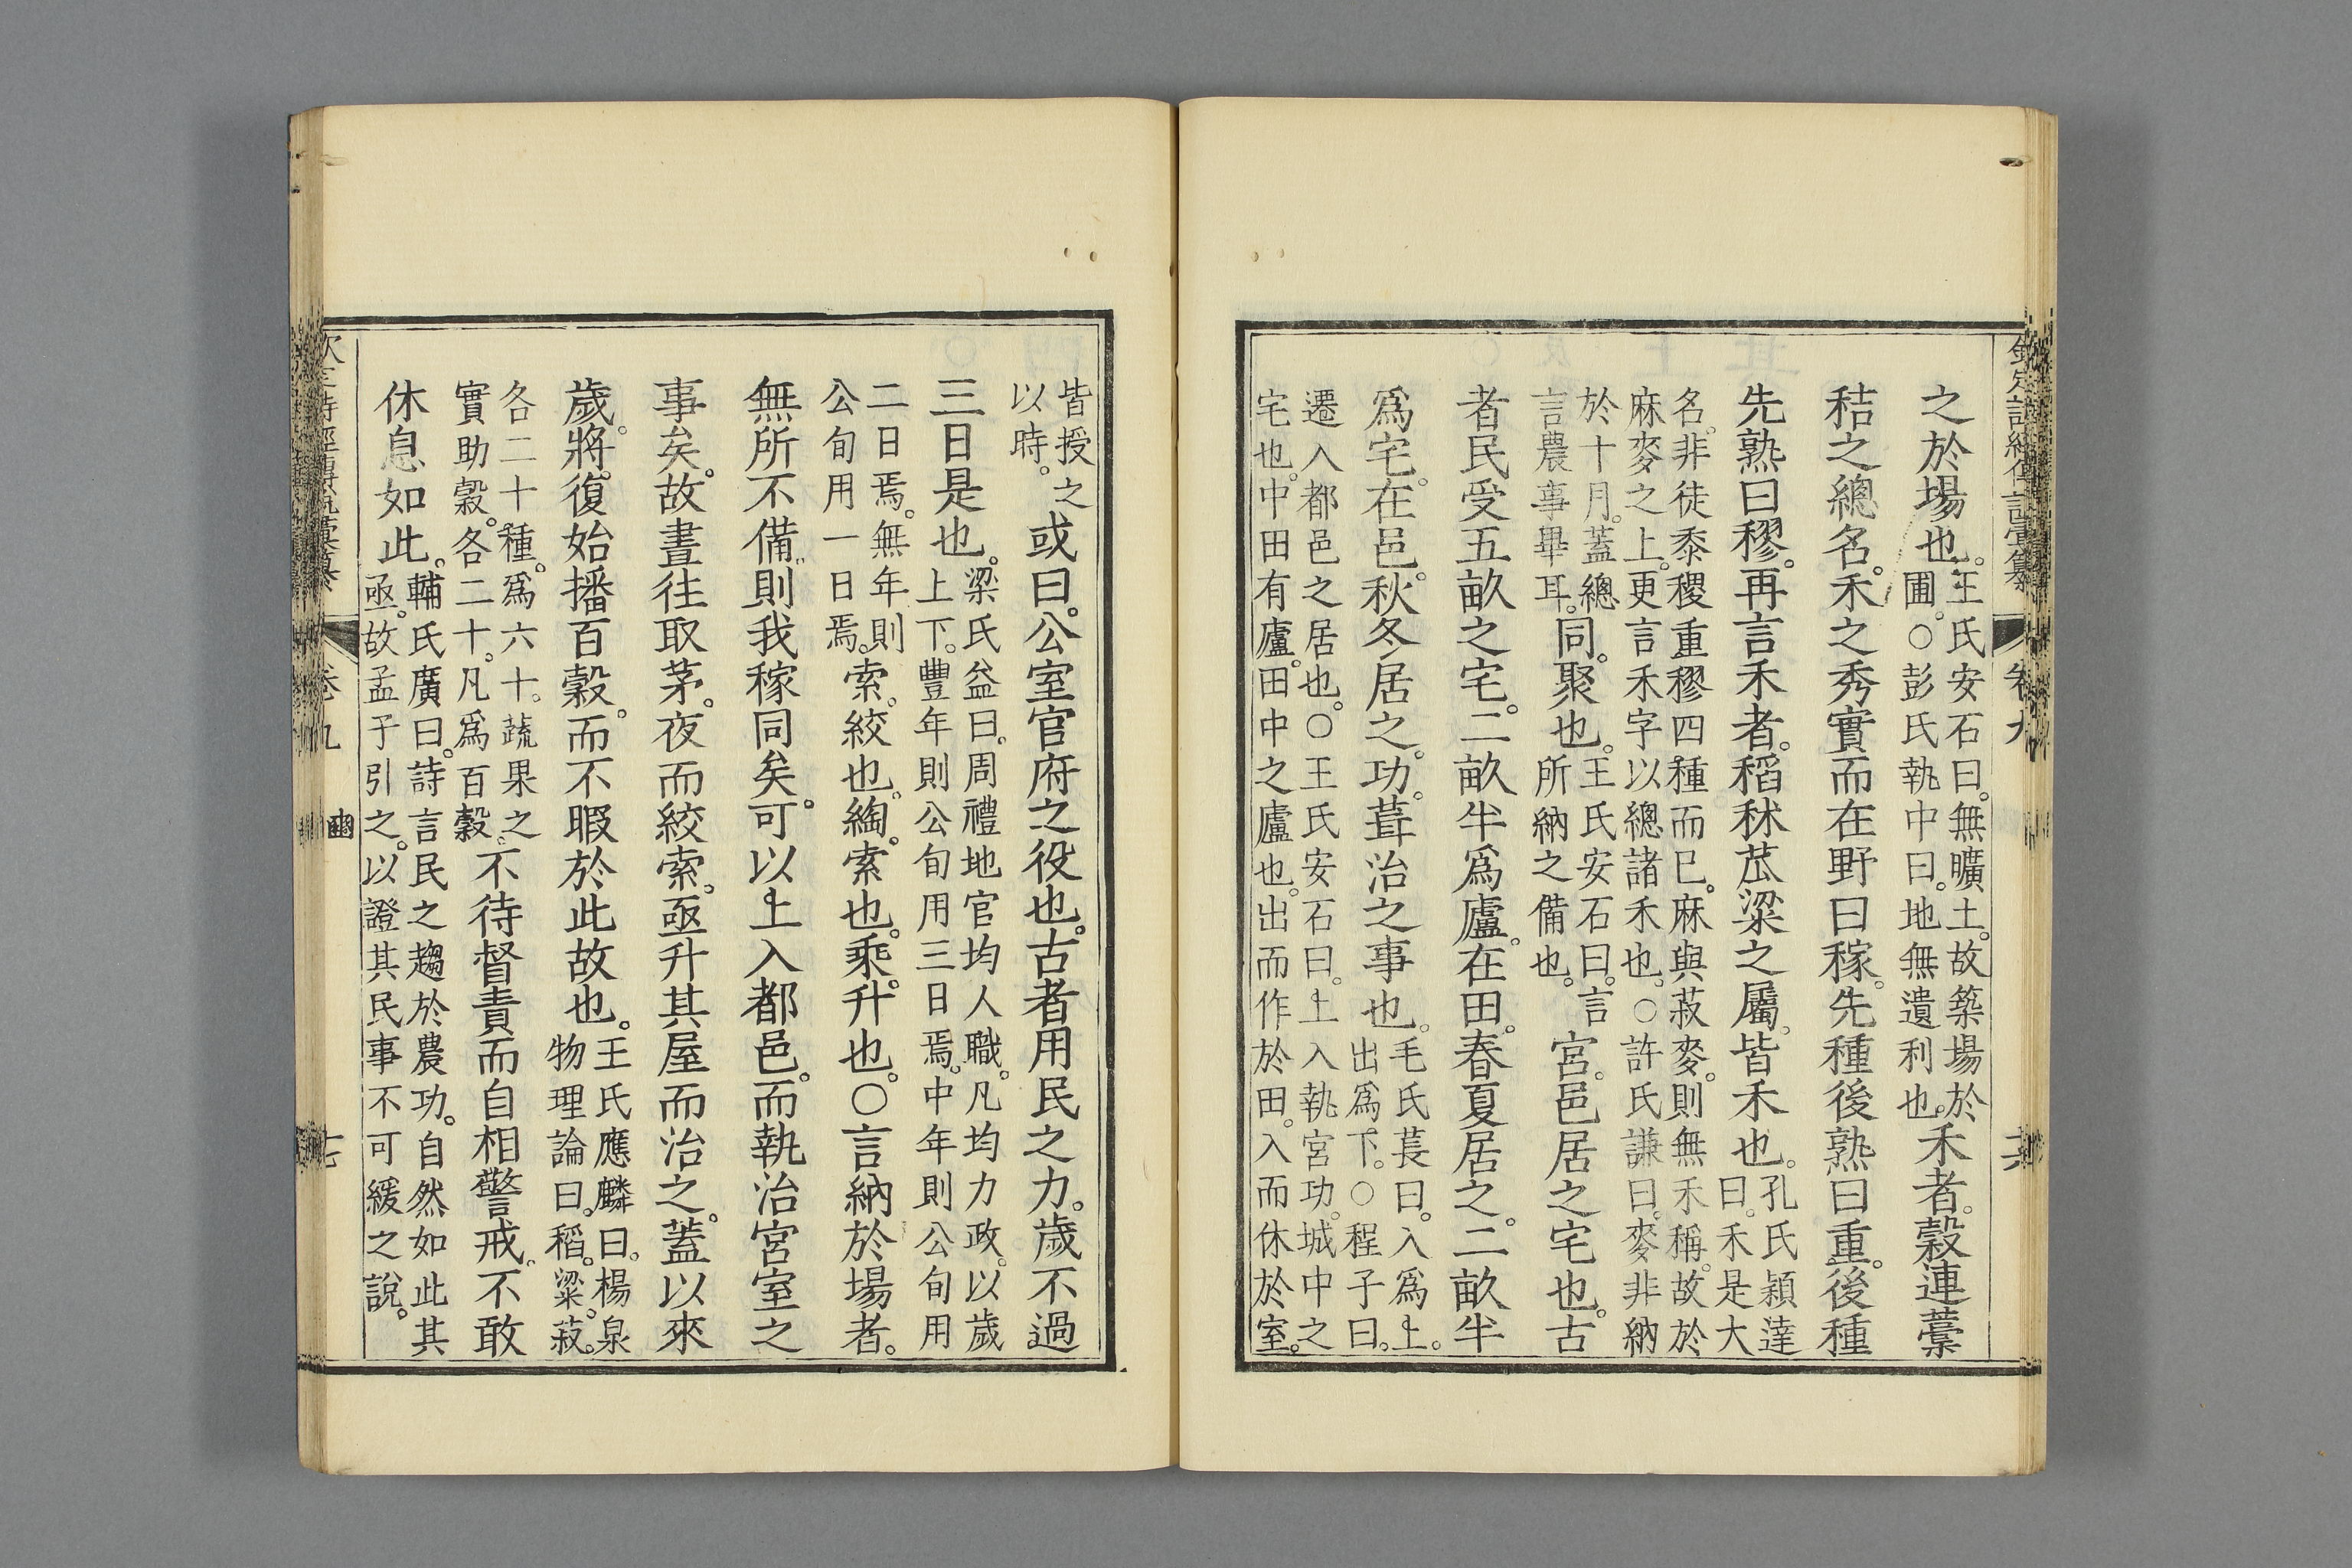 欽定詩經傳說彙纂 卷九
之於場也。王氏安石曰。無曠土。故築場於
圃。○彭氏執中曰。地無遺利也。禾者。穀連藁
秸之總名。禾之秀實而在野曰稼。先種後熟曰重。後種
先熟曰穋。再言禾者。稻秫苽粱之屬。皆禾也。孔氏穎達
曰。禾是大
名。非徒黍稷重穋四種而已。麻與菽麥。則無禾稱。故於
麻麥之上。更言禾字以總諸禾也。○許氏謙曰。麥非納
於十月。蓋總
言農事畢耳。同。聚也。王氏安石曰。言
所納之備也。宮。邑居之宅也。古
者民受五畝之宅。二畝半爲廬。在田。春夏居之。二畝半
爲宅。在邑。秋冬居之。功。葺治之事也。毛氏萇曰。入爲上。
出爲下。○程子曰。
遷入都邑之居也。○王氏安石曰。上入執宮功。城中之
宅也。中田有廬。田中之廬也。出而作於田。入而休於室。
皆授之
以時。或曰。公室官府之役也。古者用民之力。歲不過
三日是也。梁氏益曰。周禮地官均人職。凡均力政。以歲
上下。豐年則公旬用三日焉。中年則公旬用
二日焉。無年則
公旬用一日焉。索。絞也。綯。索也。乘。升也。○言納於場者。
無所不備。則我稼同矣。可以上入都邑。而執治宮室之
事矣。故晝往取茅。夜而絞索。亟升其屋而治之。蓋以來
歲。將復始播百穀。而不暇於此故也。王氏應麟曰。楊泉
物理論曰。稻。粱。菽。
各二十種。爲六十。蔬果之
實助穀。各二十。凡爲百穀。不待督責而自相警戒。不敢
休息如此。輔氏廣曰。詩言民之趨於農功。自然如此其
亟。故孟子引之。以證其民事不可緩之說。
卷九 豳